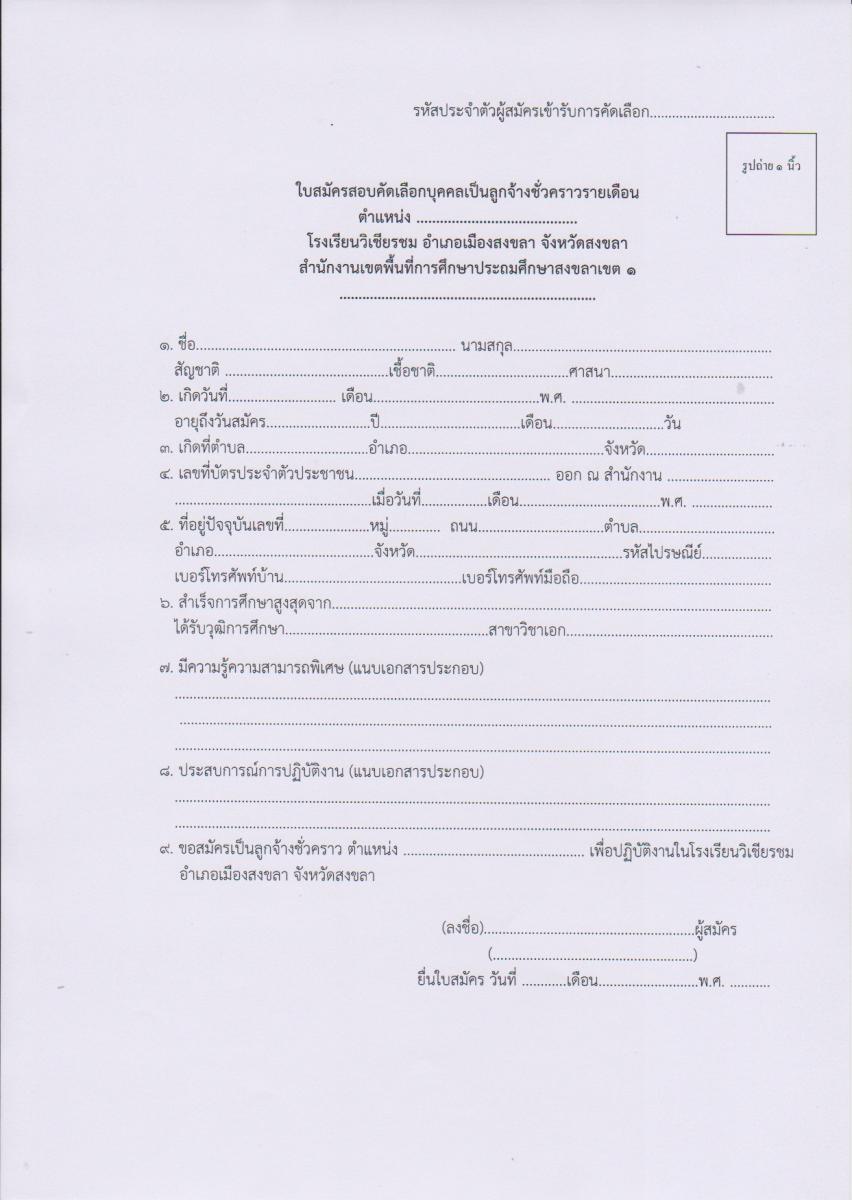 รหัสประจำตัวผู้สมัครเข้ารับการคัดเลือก................................
รูปถ่าย ๑ นิ้ว
ใบสมัครสอบคัดเลือกบุคคลเป็นลูกจ้างชั่วคราวรายเดือน
ตำแหน่ง .........................................
โรงเรียนวิเชียรชม อำเภอเมืองสงขลา จังหวัดสงขลา
สำนักงานเขตพื้นที่การศึกษาประถมศึกษาสงขลาเขต ๑
..................................................................
๑. ชื่อ................................................................... นามสกุล...................................................................
สัญชาติ ..........................................เชื้อชาติ..................................ศาสนา..........................................
๒. เกิดวันที่............................ เดือน...........................................พ.ศ. ....................................................
อายุถึงวันสมัคร...........................ปี....................................เดือน.............................วัน
๓. เกิดที่ตำบล................................อำเภอ..................................................จังหวัด.................................
๔. เลขที่บัตรประจำตัวประชาชน................................................... ออก ณ สำนักงาน ............................
...................................................เมื่อวันที่.................เดือน.....................................พ.ศ. .....................
๕. ที่อยู่ปัจจุบันเลขที่......................หมู่............. ถนน.................................ตำบล...................................
อำเภอ.........................................จังหวัด......................................................รหัสไปรษณีย์..................
เบอร์โทรศัพท์บ้าน..............................................เบอร์โทรศัพท์มือถือ..................................................
๖. สำเร็จการศึกษาสูงสุดจาก..................................................................................................................
ได้รับวุฒิการศึกษา.....................................................สาขาวิชาเอก.....................................................
๗. มีความรู้ความสามารถพิเศษ (แนบเอกสารประกอบ)
..........................................................................................................................................................
..........................................................................................................................................................
..........................................................................................................................................................
๘. ประสบการณ์การปฏิบัติงาน (แนบเอกสารประกอบ)
..........................................................................................................................................................
..........................................................................................................................................................
๙. ขอสมัครเป็นลูกจ้างชั่วคราว ตำแหน่ง ............................................... เพื่อปฏิบัติงานในโรงเรียนวิเชียรชม
อำเภอเมืองสงขลา จังหวัดสงขลา
(ลงชื่อ)......................................................ผู้สมัคร
(....................................................)
ยื่นใบสมัคร วันที่ ............เดือน..........................พ.ศ. ...........